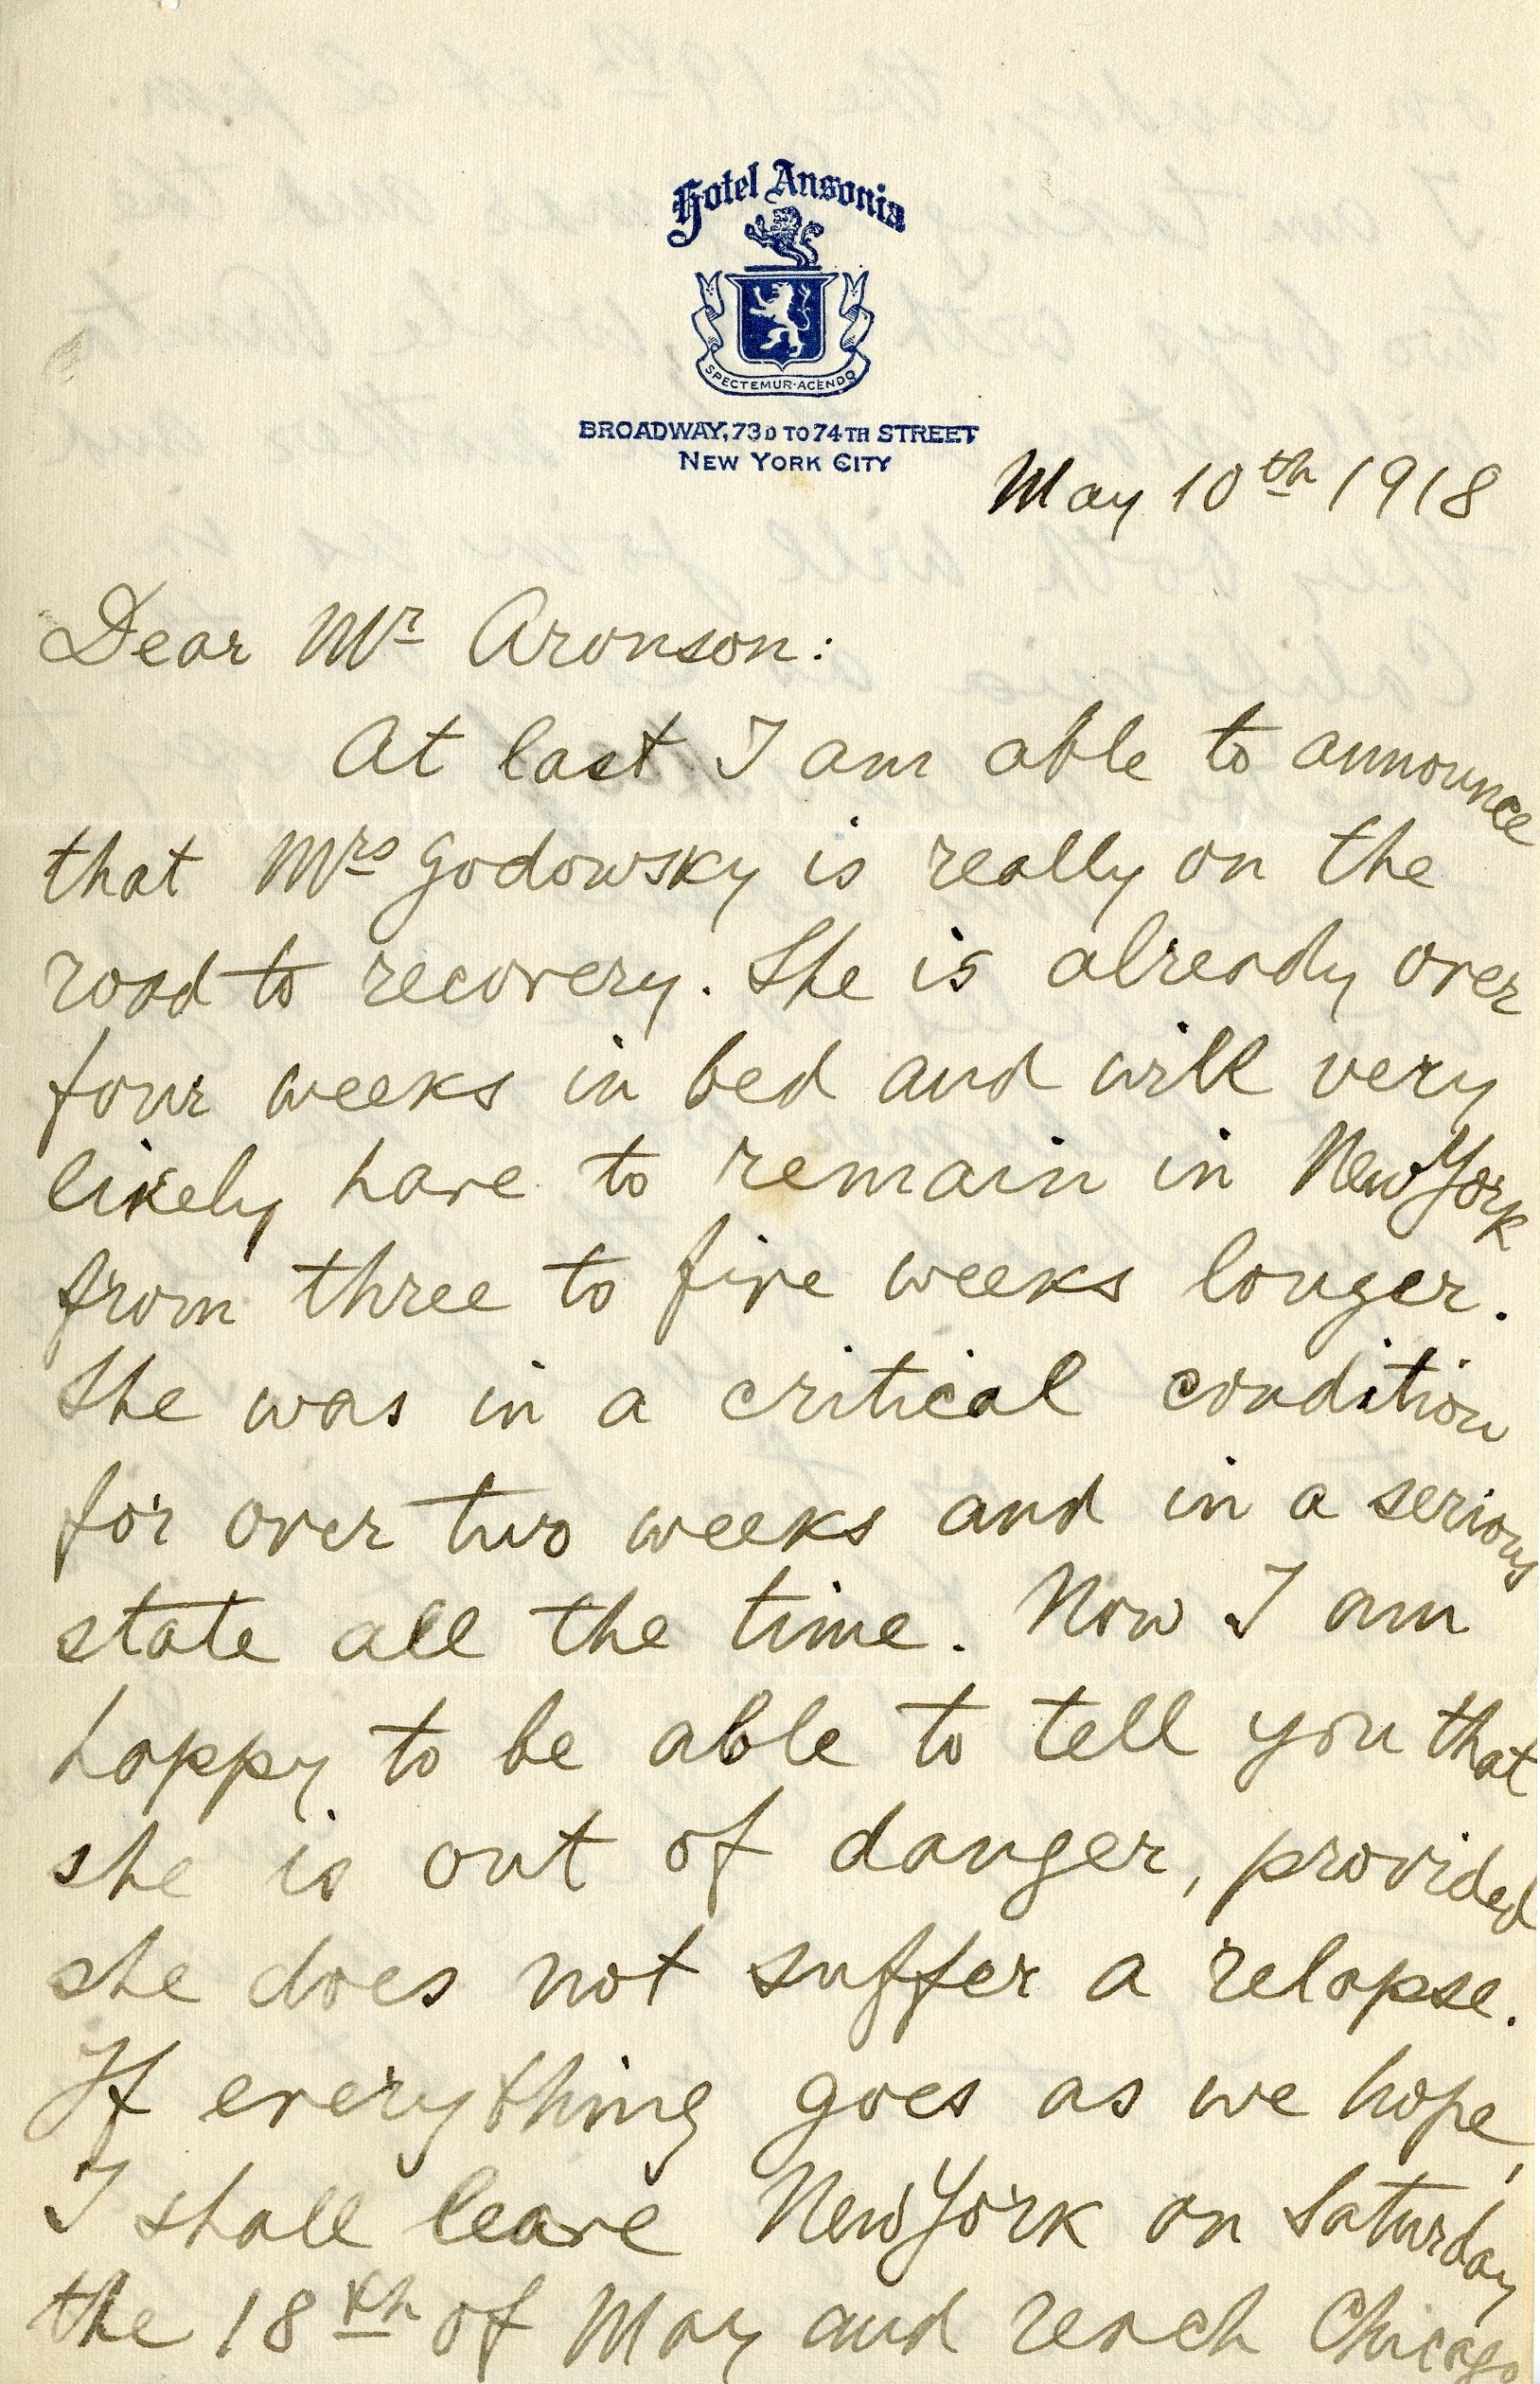 Hotel Ansonia
SPECTEMUR·AGENDO
BROADWAY, 73D TO 74TH STREET
NEW YORK CITY
May 10th 1918
Dear Mr Aronson:
At last I am able to announce
that Mrs Godowsky is really on the
road to recovery. She is already over
four weeks in bed and will very
likely have to remain in New York
from three to five weeks longer.
She was in a critical condition
for over two weeks and in a serious
state all the time. Now I am
happy to be able to tell you that
she is out of danger, provided
she does not suffer a relapse.
If everything goes as we hope,
I shall leave New York on Saturday
the 18th of May and reach Chicago